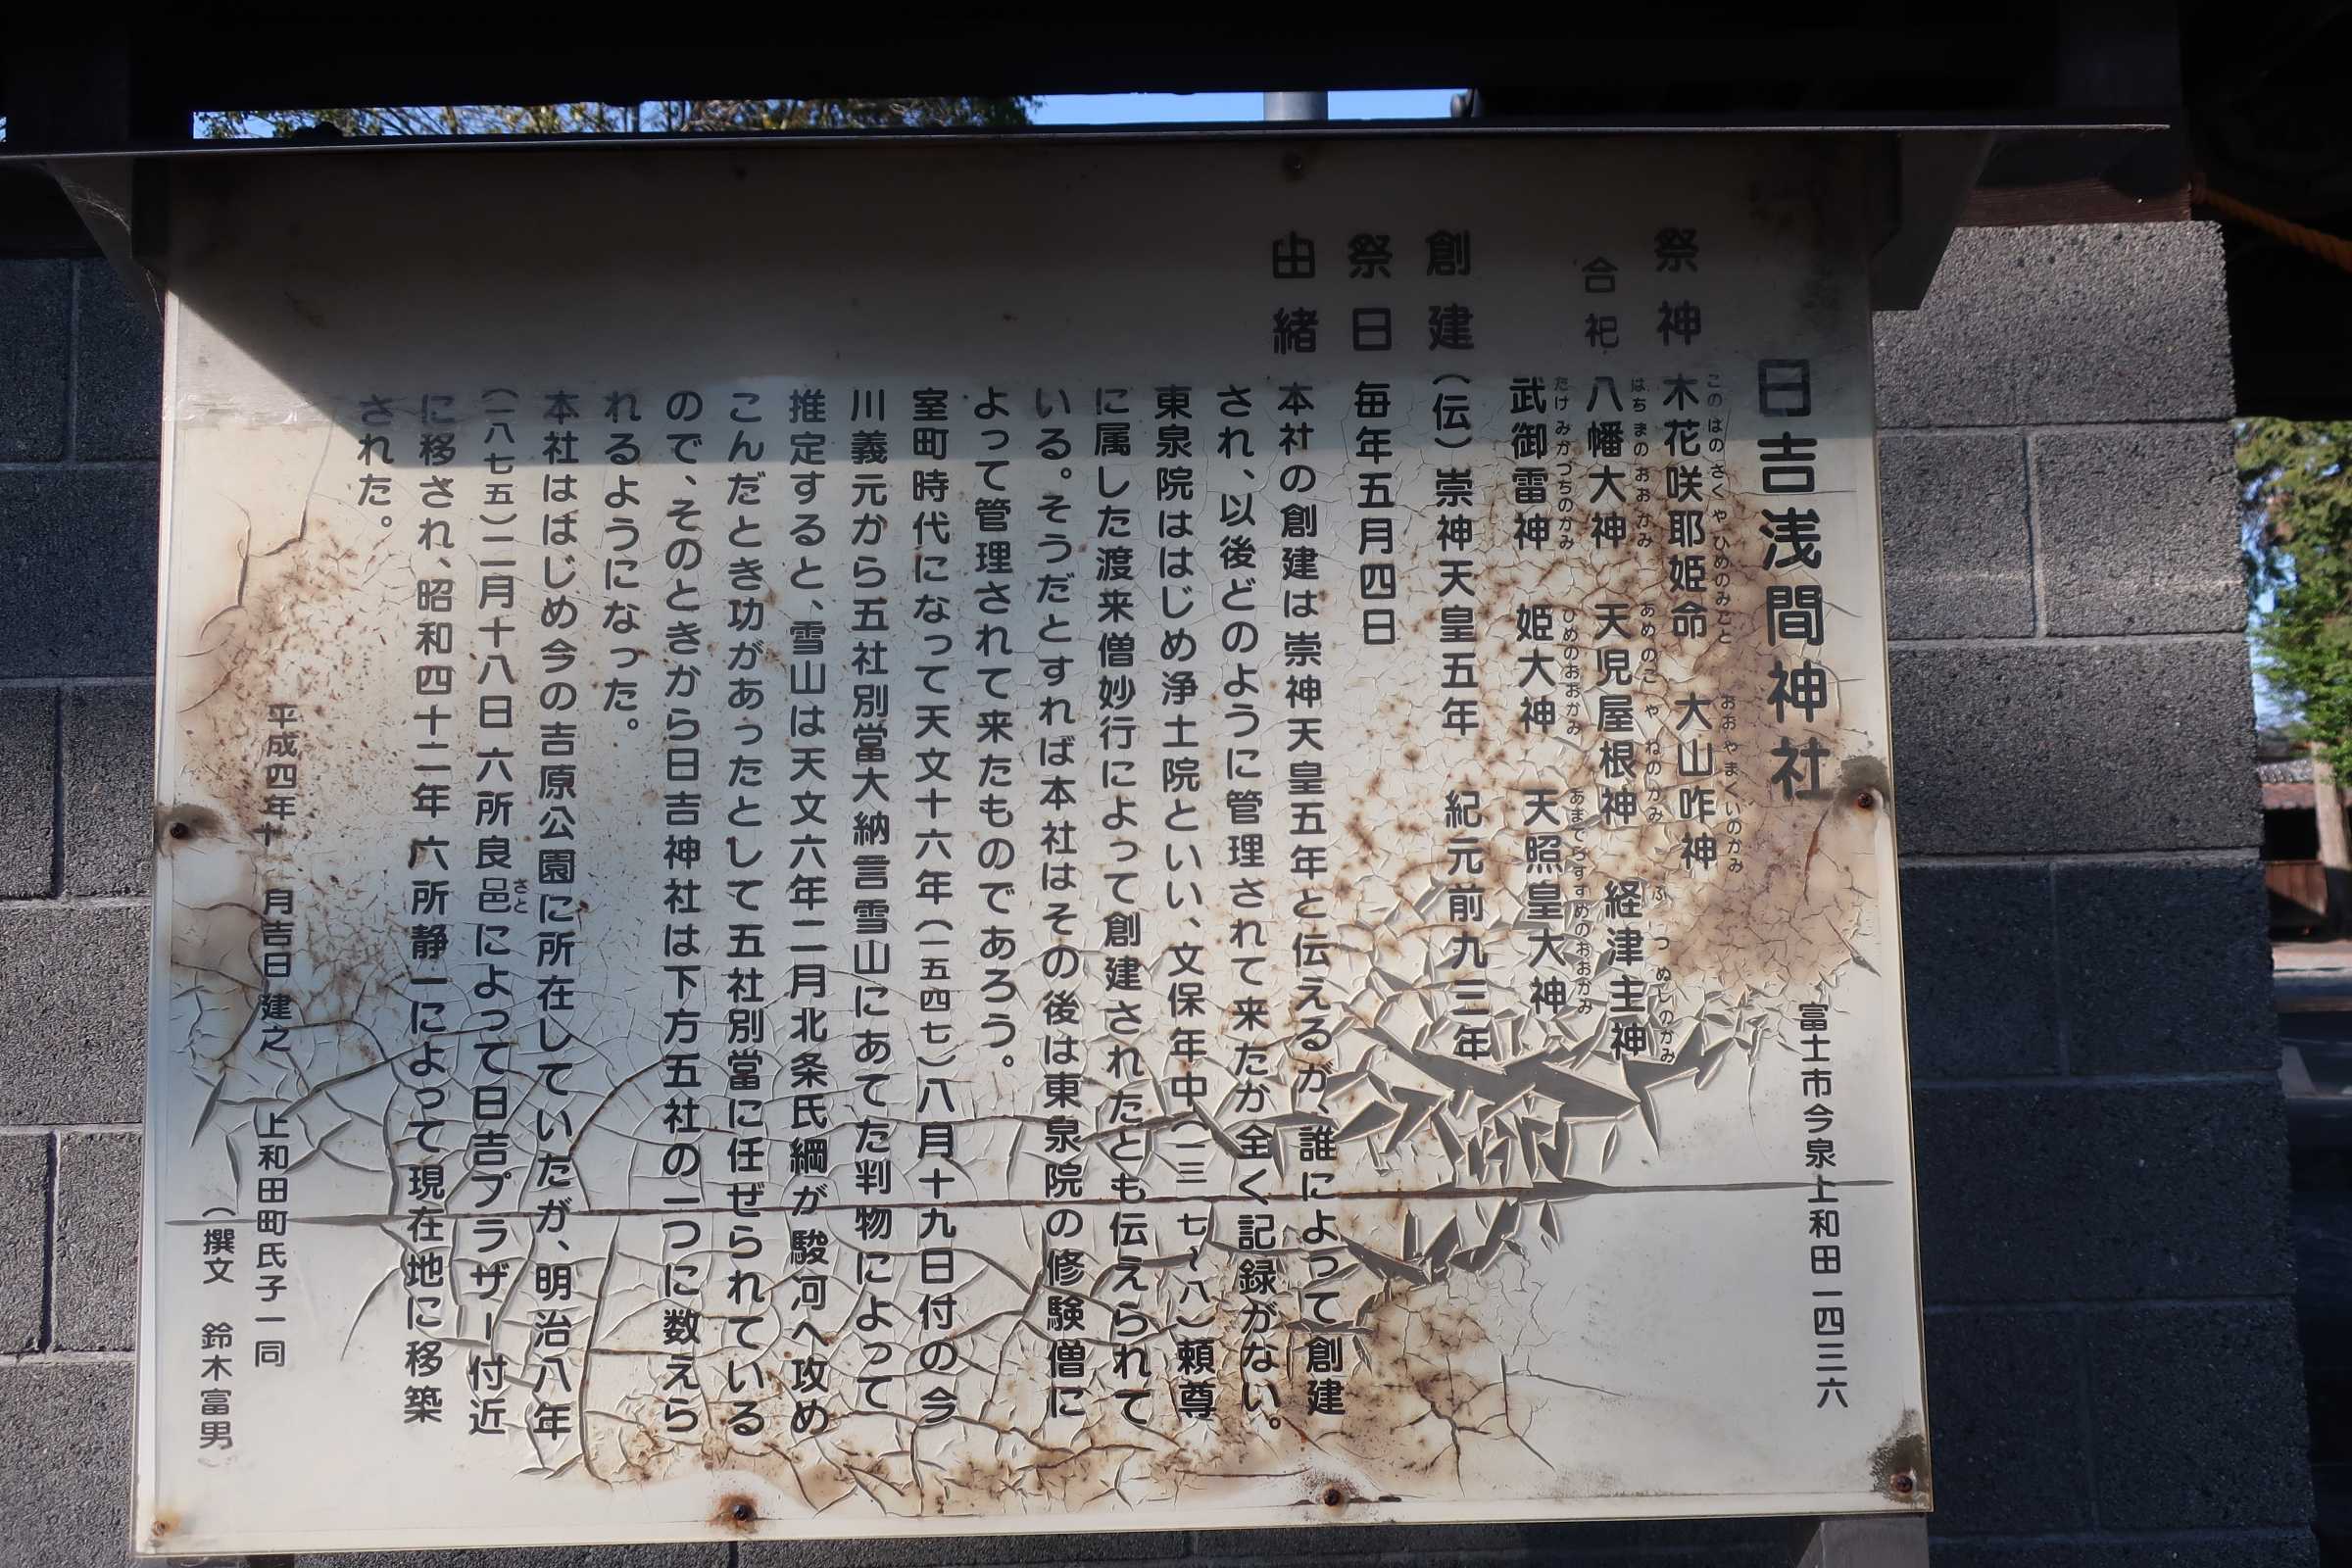 日吉浅間神社
富士市今泉上和田一四三六
祭神 木花咲耶姫命 大山咋神
このはのさくやひめのみこと おおやまくいのかみ
合祀 八幡大神 天児屋根神 経津主神
はちまのおおかみ あめのこやねのかみ ふつぬしのかみ
武御雷神 姫大神 天照皇大神
たけみかつちのかみ ひめのおおかみ あまてらすすめのおおかみ
創建 (伝)崇神天皇五年 紀元前九三年
祭日 毎年五月四日
由緒 本社の創建は崇神天皇五年と伝えるが、誰によって創建
され、以後どのように管理されて来たか全く記録がない。
東泉院ははじめ浄土院といい、文保年中(一三一七〜八)頼尊
に属した渡来僧妙行によって創建されたとも伝えられて
いる。そうだとすれば本社はその後は東泉院の修験僧に
よって管理されて来たものであろう。
室町時代になって天文十六年(一五四七)八月十九日付の今
川義元から五社別當大納言雪山にあてた判物によって
推定すると、雪山は天文六年二月北条氏綱が駿河へ攻め
こんだとき功があったとして五社別當に任ぜられている
ので、そのときから日吉神社は下方五社の一つに数えら
れるようになった。
本社ははじめ今の吉原公園に所在していたが、明治八年
(一八七五)二月十八日六所良邑によって日吉プラザー付近
さと
に移され、昭和四十二年六所静一によって現在地に移築
された。
平成四年十一月吉日建之 上和田町氏子一同
(撰文 鈴木富男)